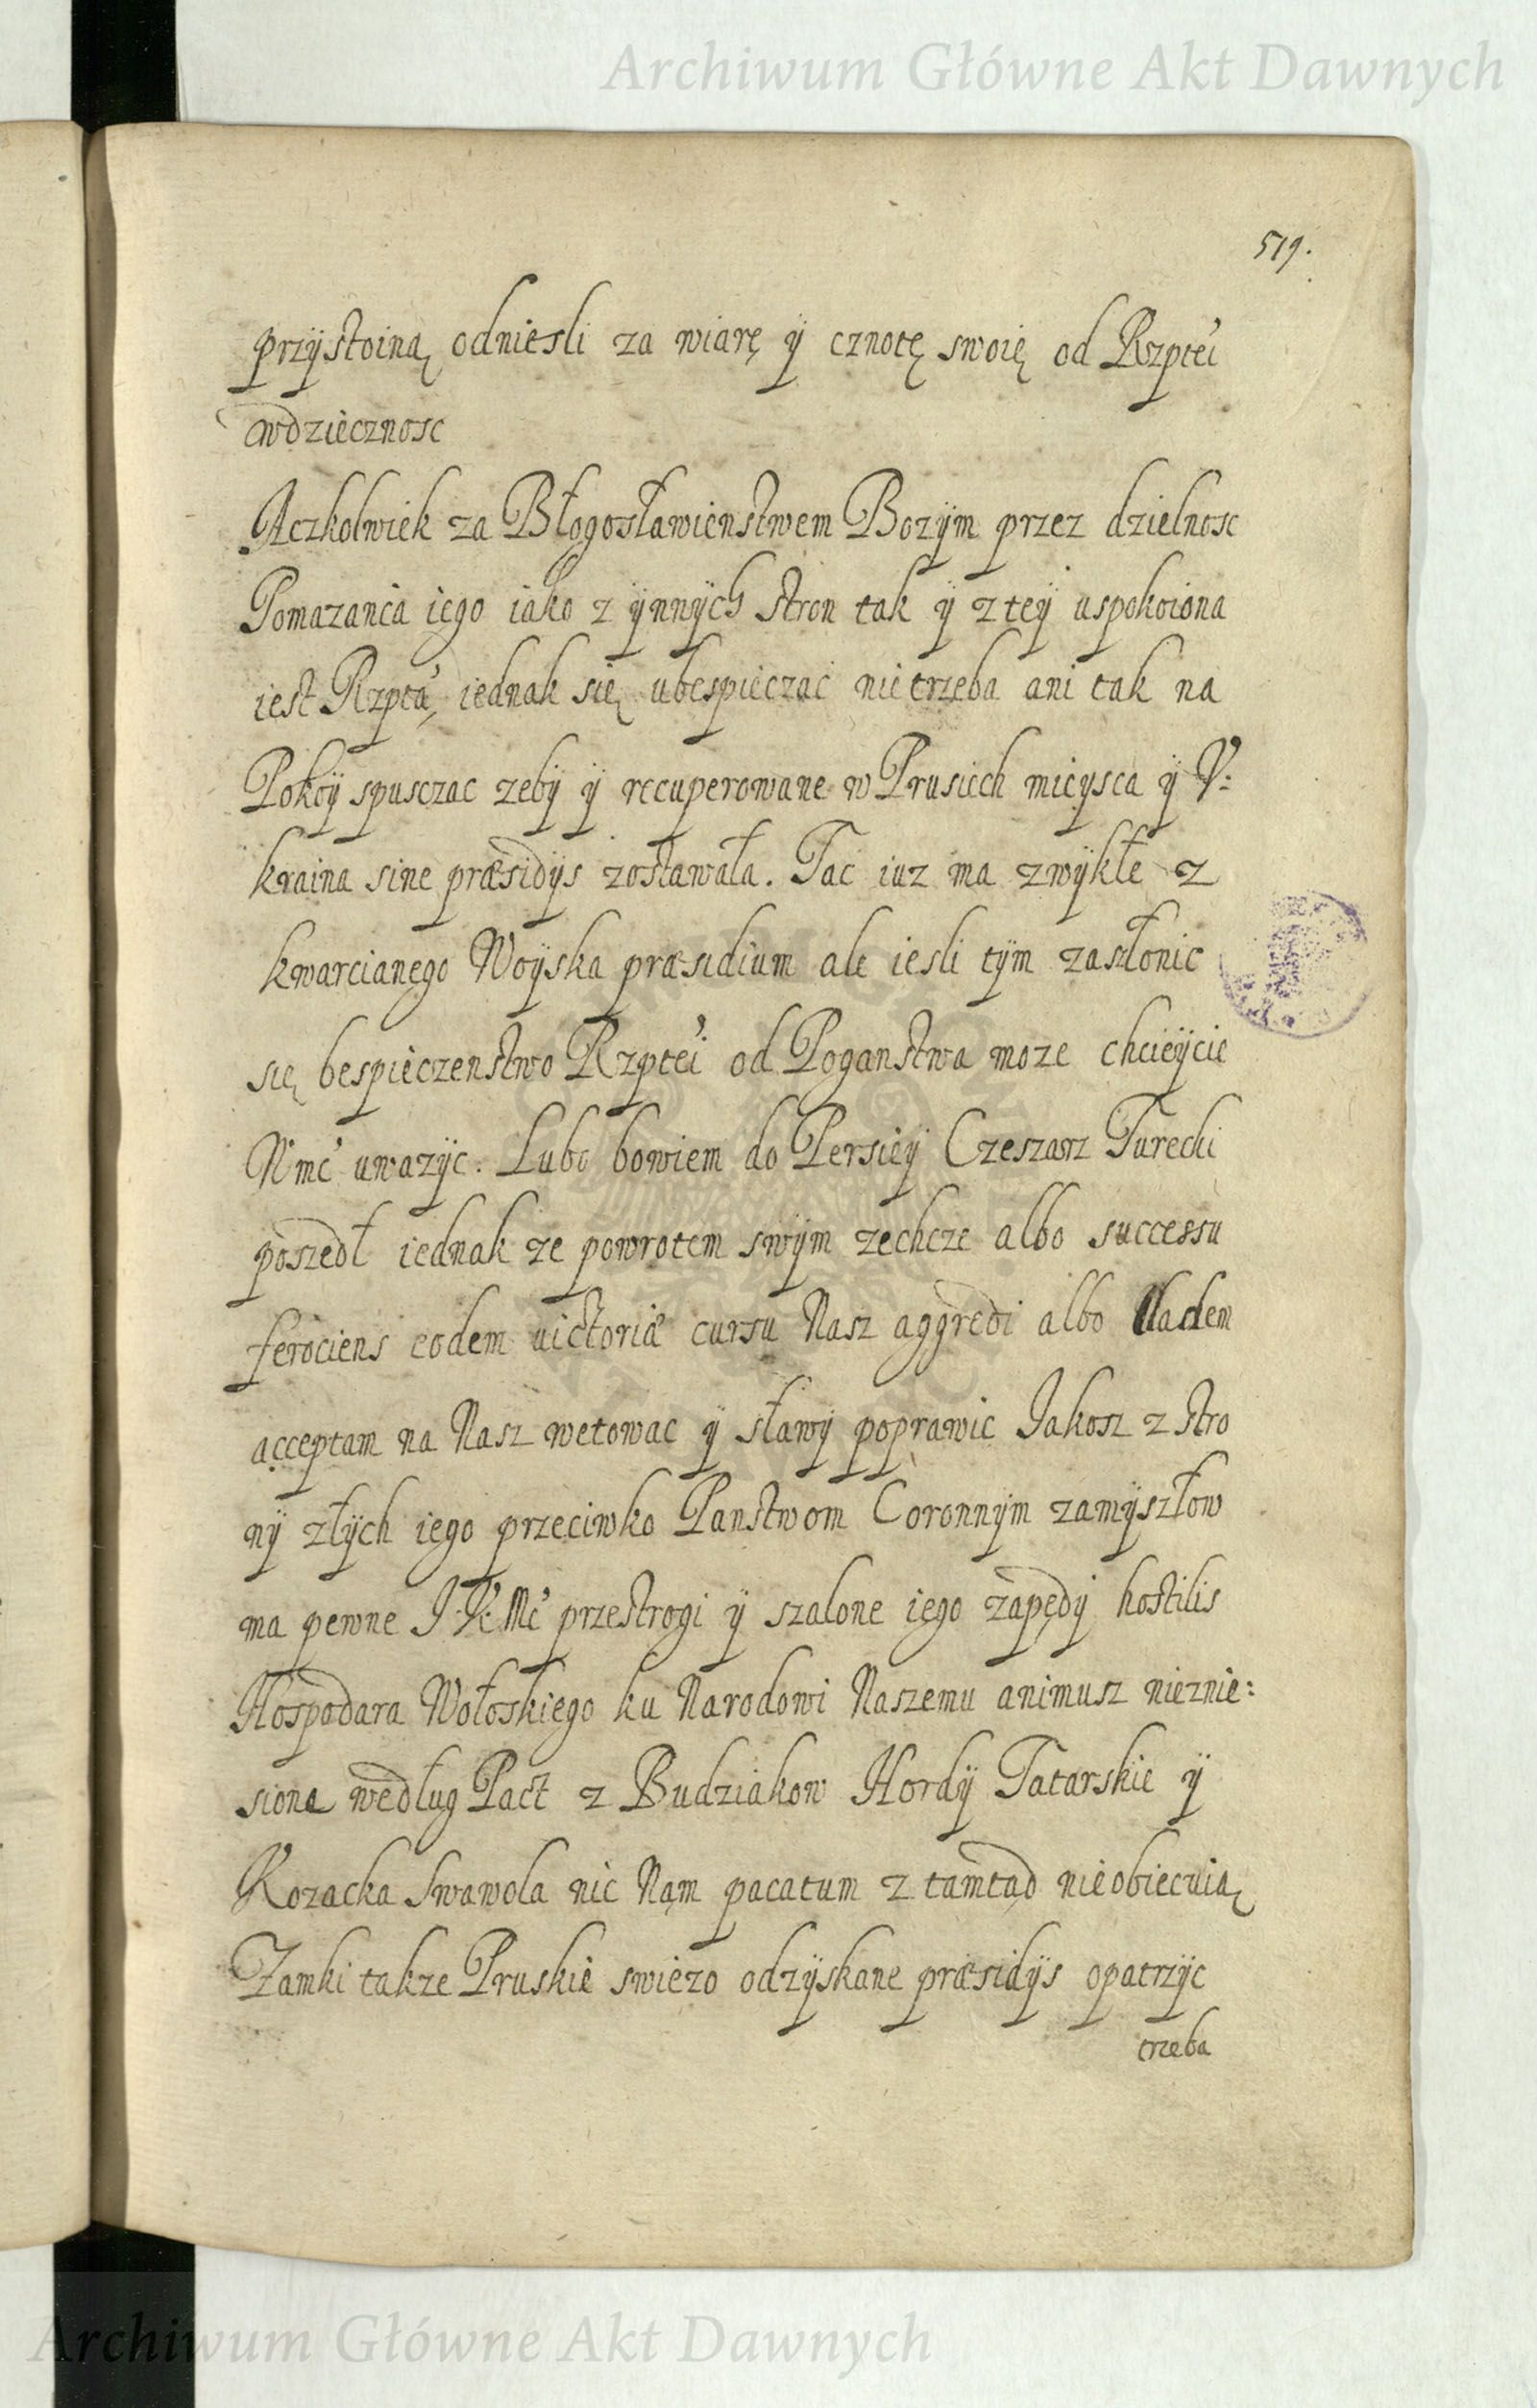 Archiwum Główne Akt Dawnych
519.
przÿstoiną odniesli za wiarę ÿ cznotę swoię od Rzptei
wdziecznosc
Aczkolwiek za Błogosławienstwem Bozÿm przez dzielnosc
Pomazanca iego iako z ÿnnÿch stron tak ÿ z teÿ uspokoiona
iest Rzpta, iednak się ubespieczac nietrzeba ani tak na
Pokoÿ spusczac zebÿ ÿ recuperowane w Prusiech mieysca ÿ V:
kraina sine præsidÿs zostawała. Tac iuz ma zwÿkłe z
kwarcianego Woÿska præsidium ale iesli tÿm zasłonic
się bespieczenstwo Rzptei od Poganstwa moze chcieÿcie
Wmć uwazÿc. Lubo bowiem do Persieÿ Czeszarz Turecki
poszedł iednak ze powrotem swÿm zechcze albo successu
ferociens eodem uictoriæ cursu Nasz aggredi albo Cladem
acceptam na Nasz wetowac ÿ sławÿ poprawic Jakosz z stro
nÿ złÿch iego przeciwko Panstwom Coronnÿm zamÿszłow
ma pewne J. K. Mć przestrogi ÿ szalone iego zapędÿ hostilis
Hospodara Wołoskiego ku Narodowi Naszemu animusz nieznie:
sione według Pact z Budziakow Hordÿ Tatarskie ÿ
Kozacka Swawola nic Nąm pacatum z tamtąd nieobiecuią
Zamki takze Pruskie swiezo odzÿskane præsidÿs opatrzÿc
trzeba
Archiwum Główne Akt Dawnych